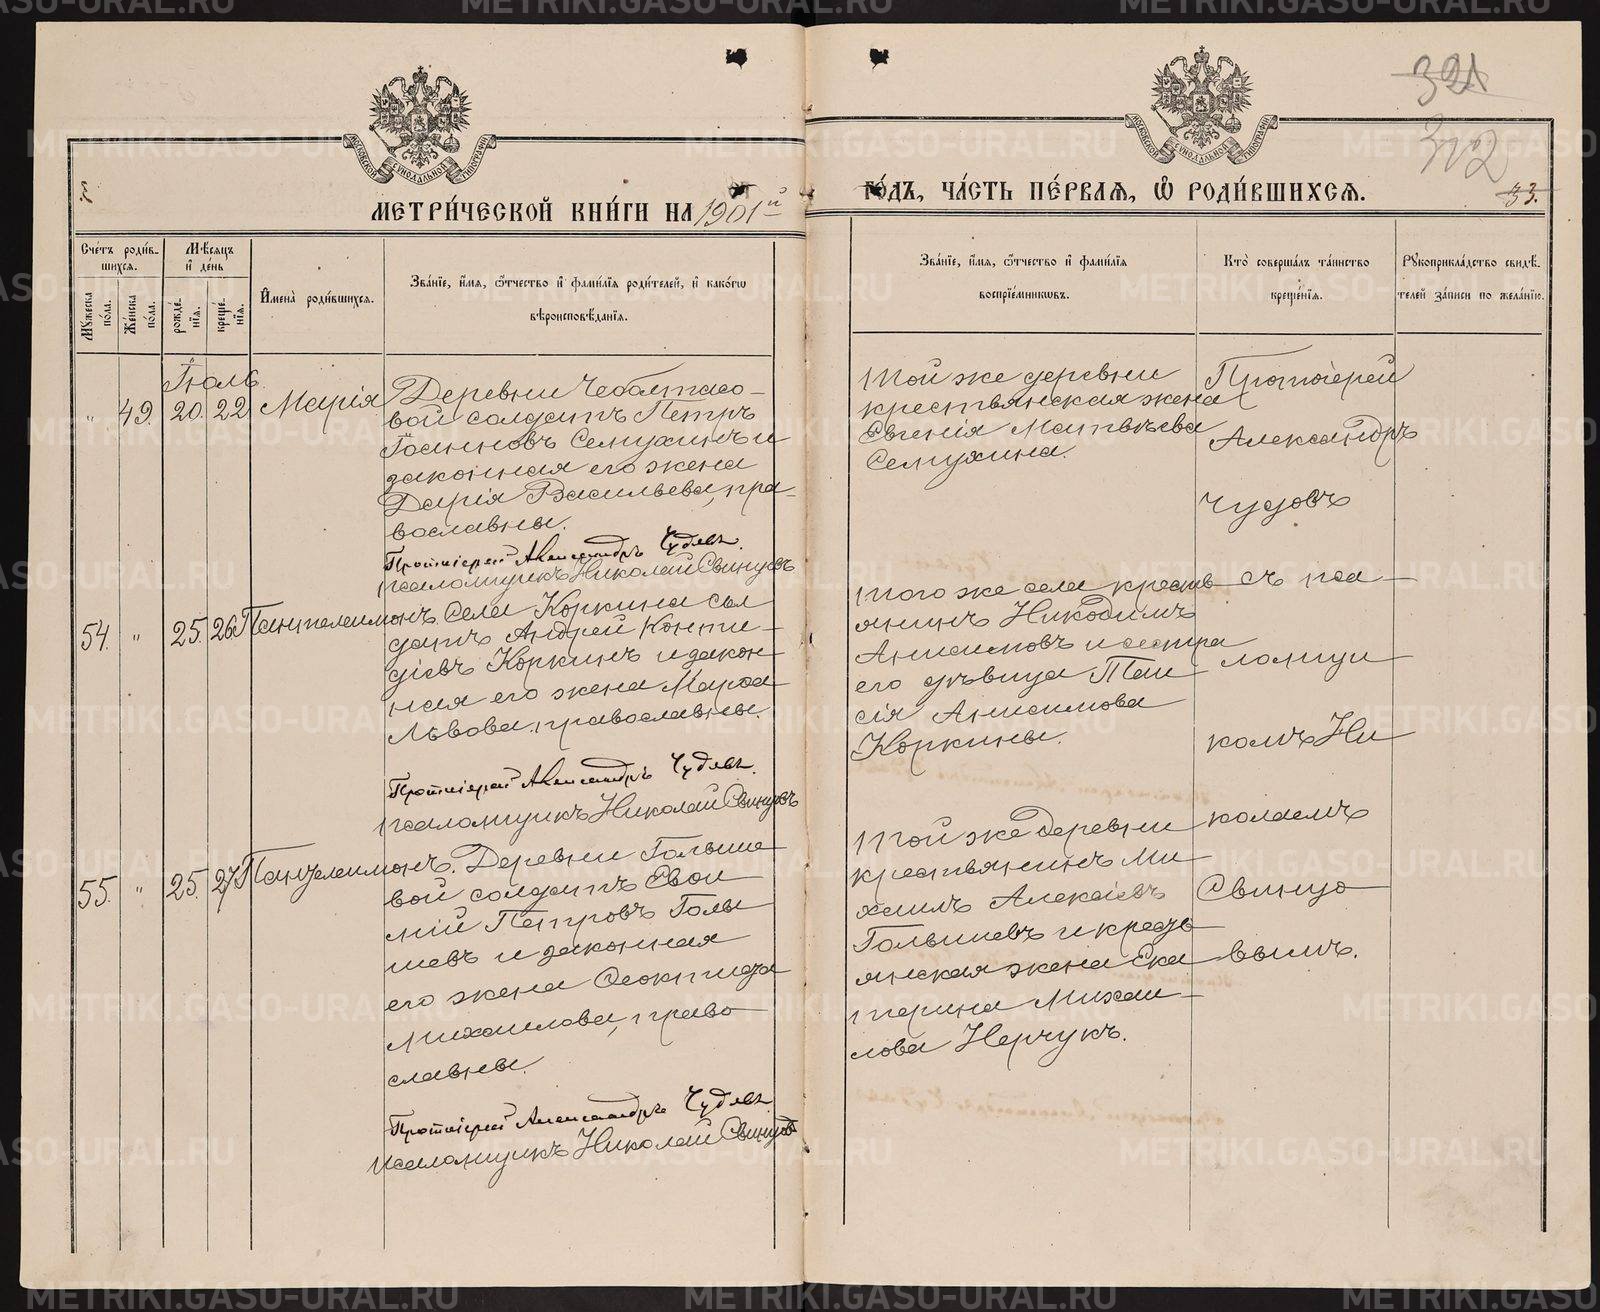 321
312
33.
МОСКОВСКОЙ СѴНОДАЛЬНОЙ ТИПОГРАФІИ
МОСКОВСКОЙ СѴНОДАЛЬНОЙ ТИПОГРАФІИ
МЕТРИ́ЧЕСКОЙ КНИ́ГИ НА 1901й
ГО́ДЪ, ЧА́СТЬ ПЕ́РВАѦ, Ѡ РОДИ́ВШИХСѦ.
Сче́тъ роди́в-
шихсѧ.
Мꙋ́жеска
по́ла.
Же́нска
по́ла.
Мѣ́сѧцъ
и҆ де́нь
рожде́-
нїѧ.
креще́-
нїѧ.
И҆мена̀ роди́вшихсѧ.
Зва́нїе, и҆́мѧ, ѻ҆́тчество и҆ фами́лїѧ роди́телей, и҆ како́гѡ
вѣроисповѣ́данїѧ.
Зва́нїе, и҆́мѧ, ѻ҆́тчество и҆ фами́лїѧ
воспрїе́мникѡвъ.
Кто̀ соверша́лъ та́инство
креще́нїѧ.
Рꙋкоприкла́дство свидѣ́-
телей за́писи по жела́нїю.
Іюль
„ 49. 20. 22 Марія
Деревни Чеболтасо-
вой солдатъ Петръ
Іоанновъ Семухинъ и
законная его жена
Дарія Васильева, пра-
вославны.
Протоіерей Александръ Чудовъ.
псаломщикъ Николай Свинцовъ
Той же деревни
крестьянская жена
Евгенія Матвѣева
Семухина.
Протоіерей
Александръ
Чудовъ
54. „ 25. 26 Пантелеимонъ.
Села Коркина сол
датъ Андрей Конти-
діевъ Коркинъ и закон-
ная его жена Марѳа
Львова, православны.
Протоіерей Александръ Чудовъ.
псаломщикъ Николай Свинцовъ
Того же села кресть
янинъ Никодимъ
Анисимовъ и сестра
его дѣвица Таи
сія Анисимова
Коркины.
съ пса-
ломщи-
комъ Ни
колаемъ
Свинцо-
вымъ.
55. „ 25. 27 Пантелеимонъ.
Деревни Голыше
вой солдатъ Евѳи
мій Петровъ Голы
шевъ и законная
его жена Ѳеоктиста
Михаилова, право-
славны.
Протоіерей Александръ Чудовъ.
псаломщикъ Николай Свинцовъ
Той же деревни
крестьянинъ Ми
хаилъ Алексіевъ
Голышевъ и кресть-
янская жена Ека
терина Михаи-
лова Нерчукъ.
METRIKI.GASO-URAL.RU